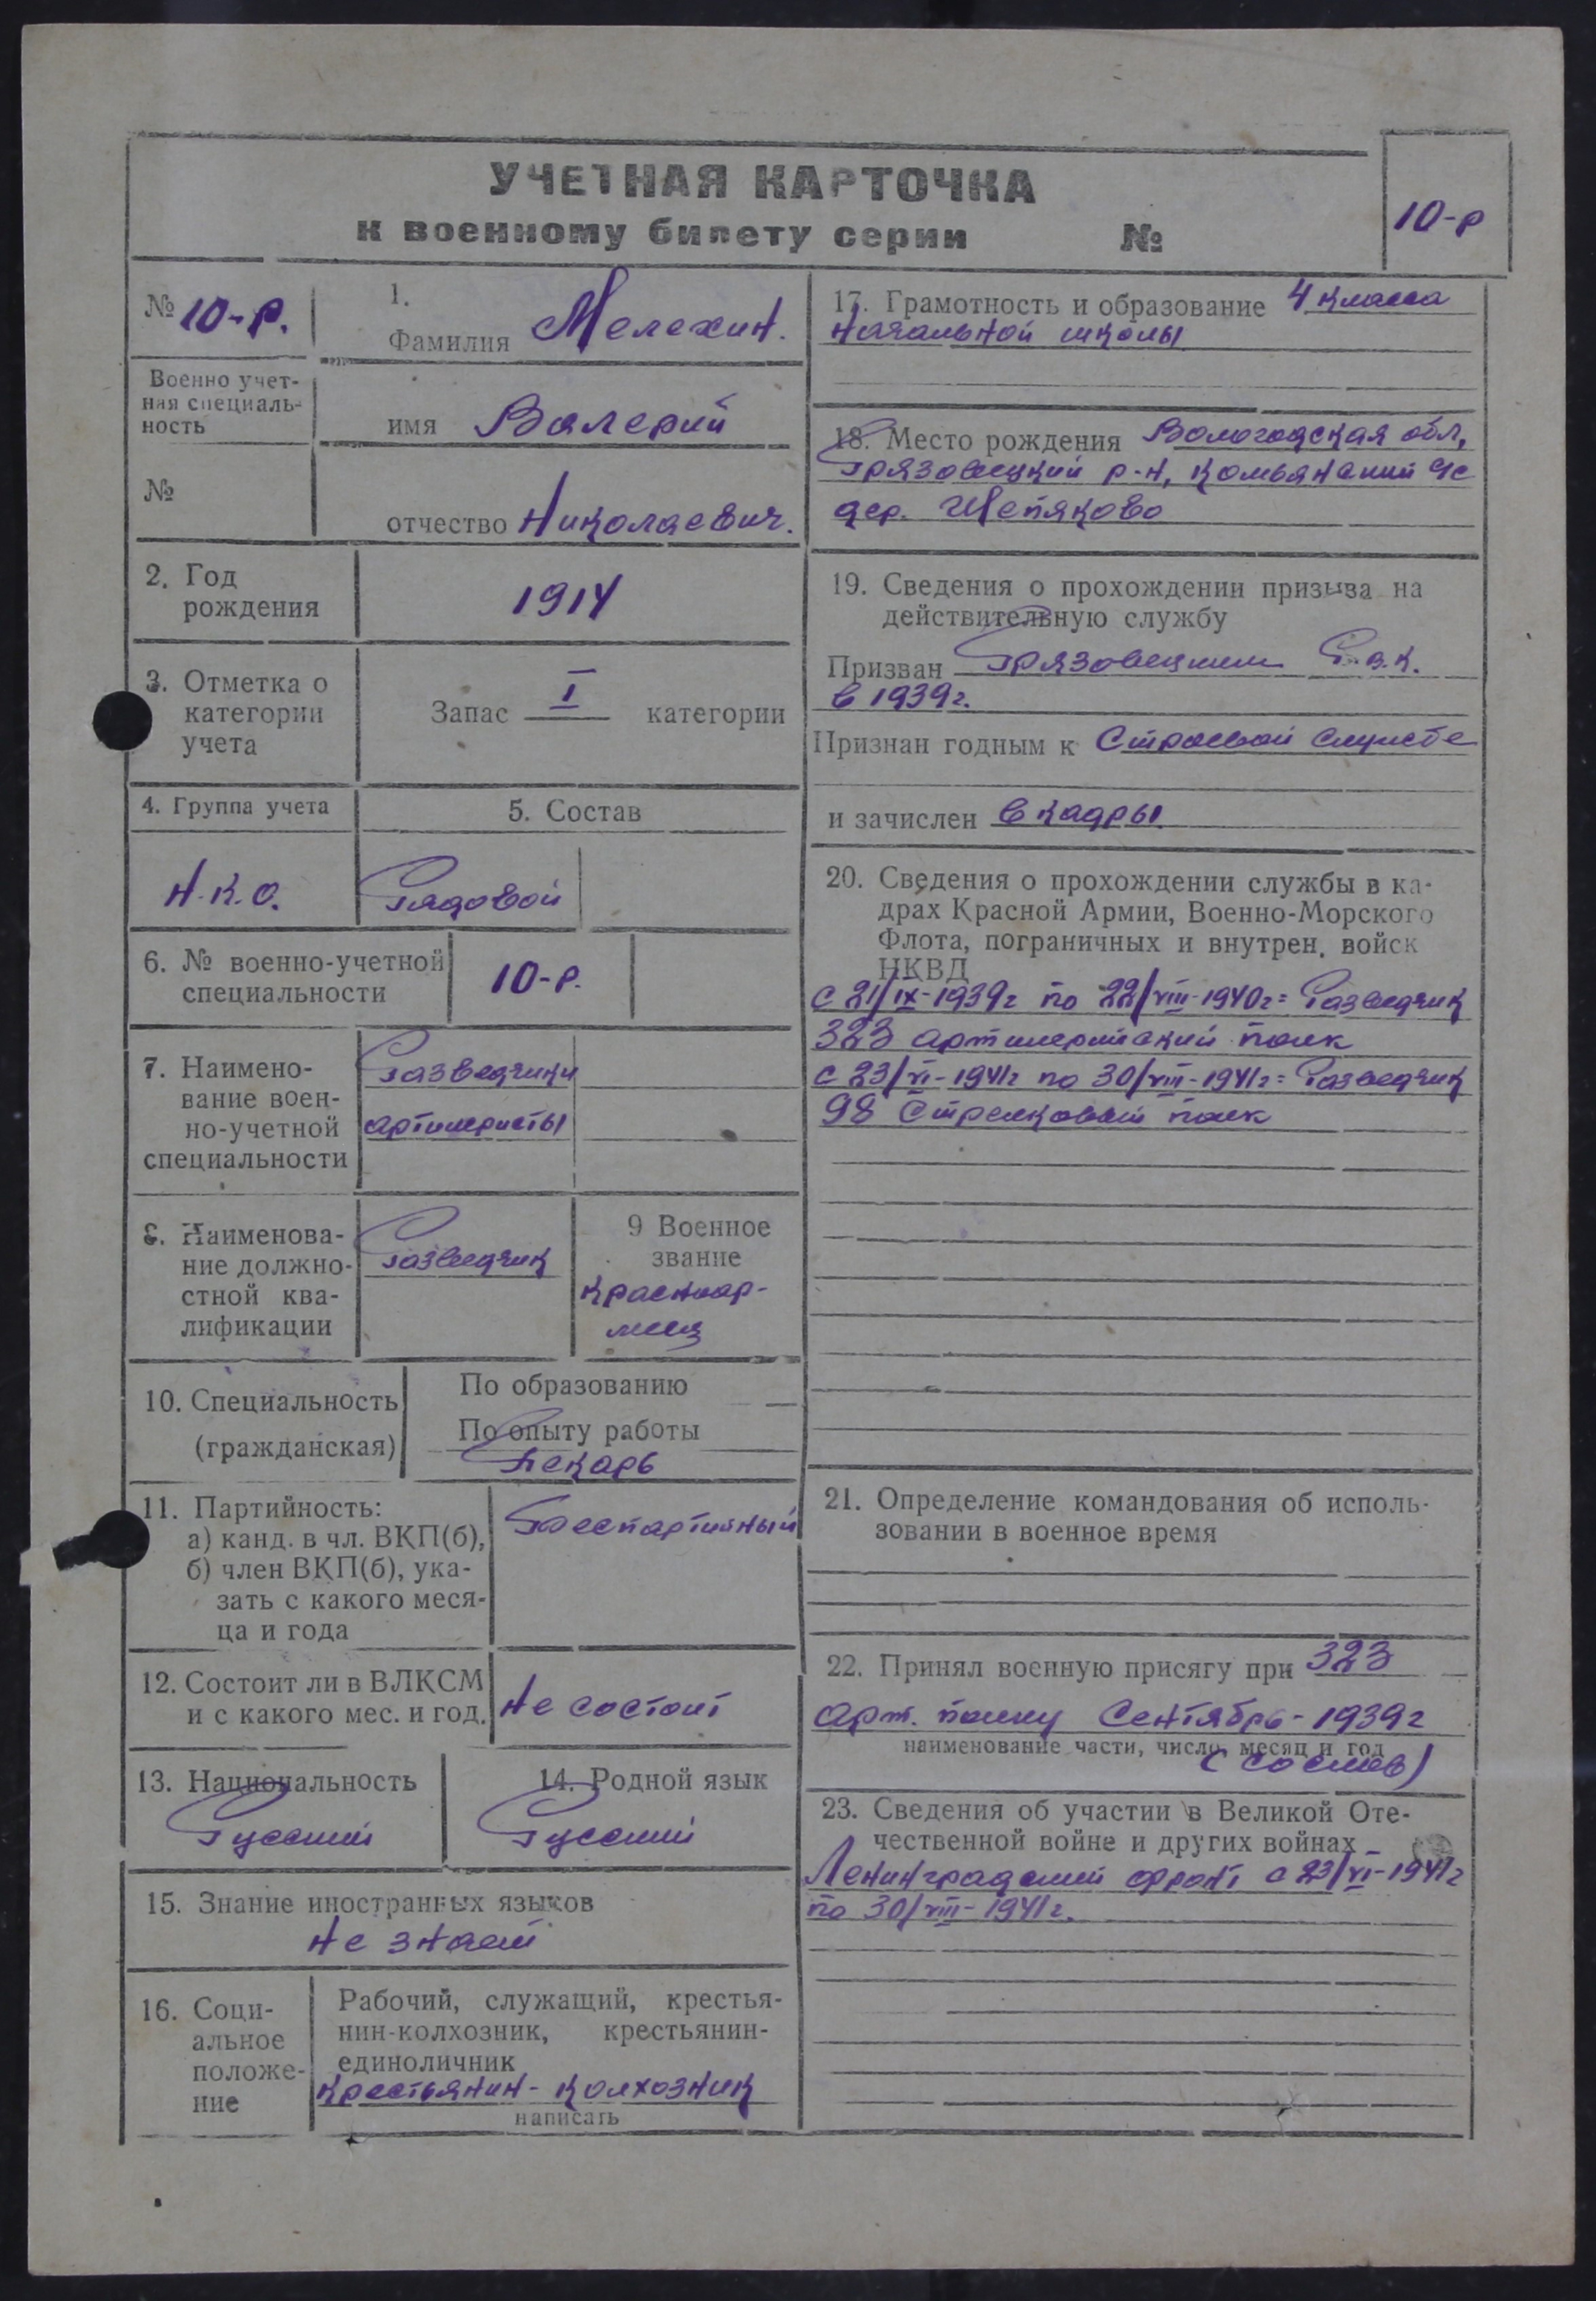 УЧЕТНАЯ КАРТОЧКА
к военному билету серии №
10-р
№ 10-р.
Военно учет-
ная специаль-
ность
№
1.
Фамилия Мелехин.
имя Валерий
отчество Николаевич.
2. Год
рождения
1914
3. Отметка о
категории
учета
Запас I категории
4. Группа учета
5. Состав
Н.К.О.
Рядовой
6. № военно-учетной
специальности
10-р.
7. Наимено-
вание воен-
но-учетной
специальности
Разведчики
артилеристы
8. Наименова-
ние должно-
стной ква-
лификации
Разведчик
9 Военное
звание
Красноар-
меец
10. Специальность
(гражданская)
По образованию
По опыту работы
Пекарь
11. Партийность:
а) канд. в чл. ВКП(б),
б) член ВКП(б), ука-
зать с какого меся-
ца и года
Беспартийный
12. Состоит ли в ВЛКСМ
и с какого мес. и год.
Не состоит
13. Национальность
Русский
14. Родной язык
Русский
15. Знание иностранных языков
Не знает
16. Соци-
альное
положе-
ние
Рабочий, служащий, крестья-
нин-колхозник, крестьянин-
единоличник
Крестьянин-колхозник
написать
17. Грамотность и образование 4 класса
начальной школы
18. Место рождения Вологодская обл,
Грязовецкий р-н,
дер. Шепяково
19. Сведения о прохождении призыва на
действительную службу
Призван Грязовецким Р.в.к.
в 1939г.
Признан годным к строевой службе
и зачислен в кадры
20. Сведения о прохождении службы в ка-
драх Красной Армии, Военно-Морского
Флота, пограничных и внутрен. войск
НКВД
с 21/IX-1939г по 22/VIII-1940г = Разведчик
323 артилерийский полк
с 23/VI-1941г по 30/VIII-1941г = Разведчик
98 Стрелковый полк
21. Определение командования об исполь-
зовании в военное время
22. Принял военную присягу при 323
арт. полку Сентябрь-1939г
наименование части, число, месяц и год
(со слов)
23. Сведения об участии в Великой Оте-
чественной войне и других войнах
Ленинградский фронт с 23/VI-1941г
по 30/VIII-1941г.